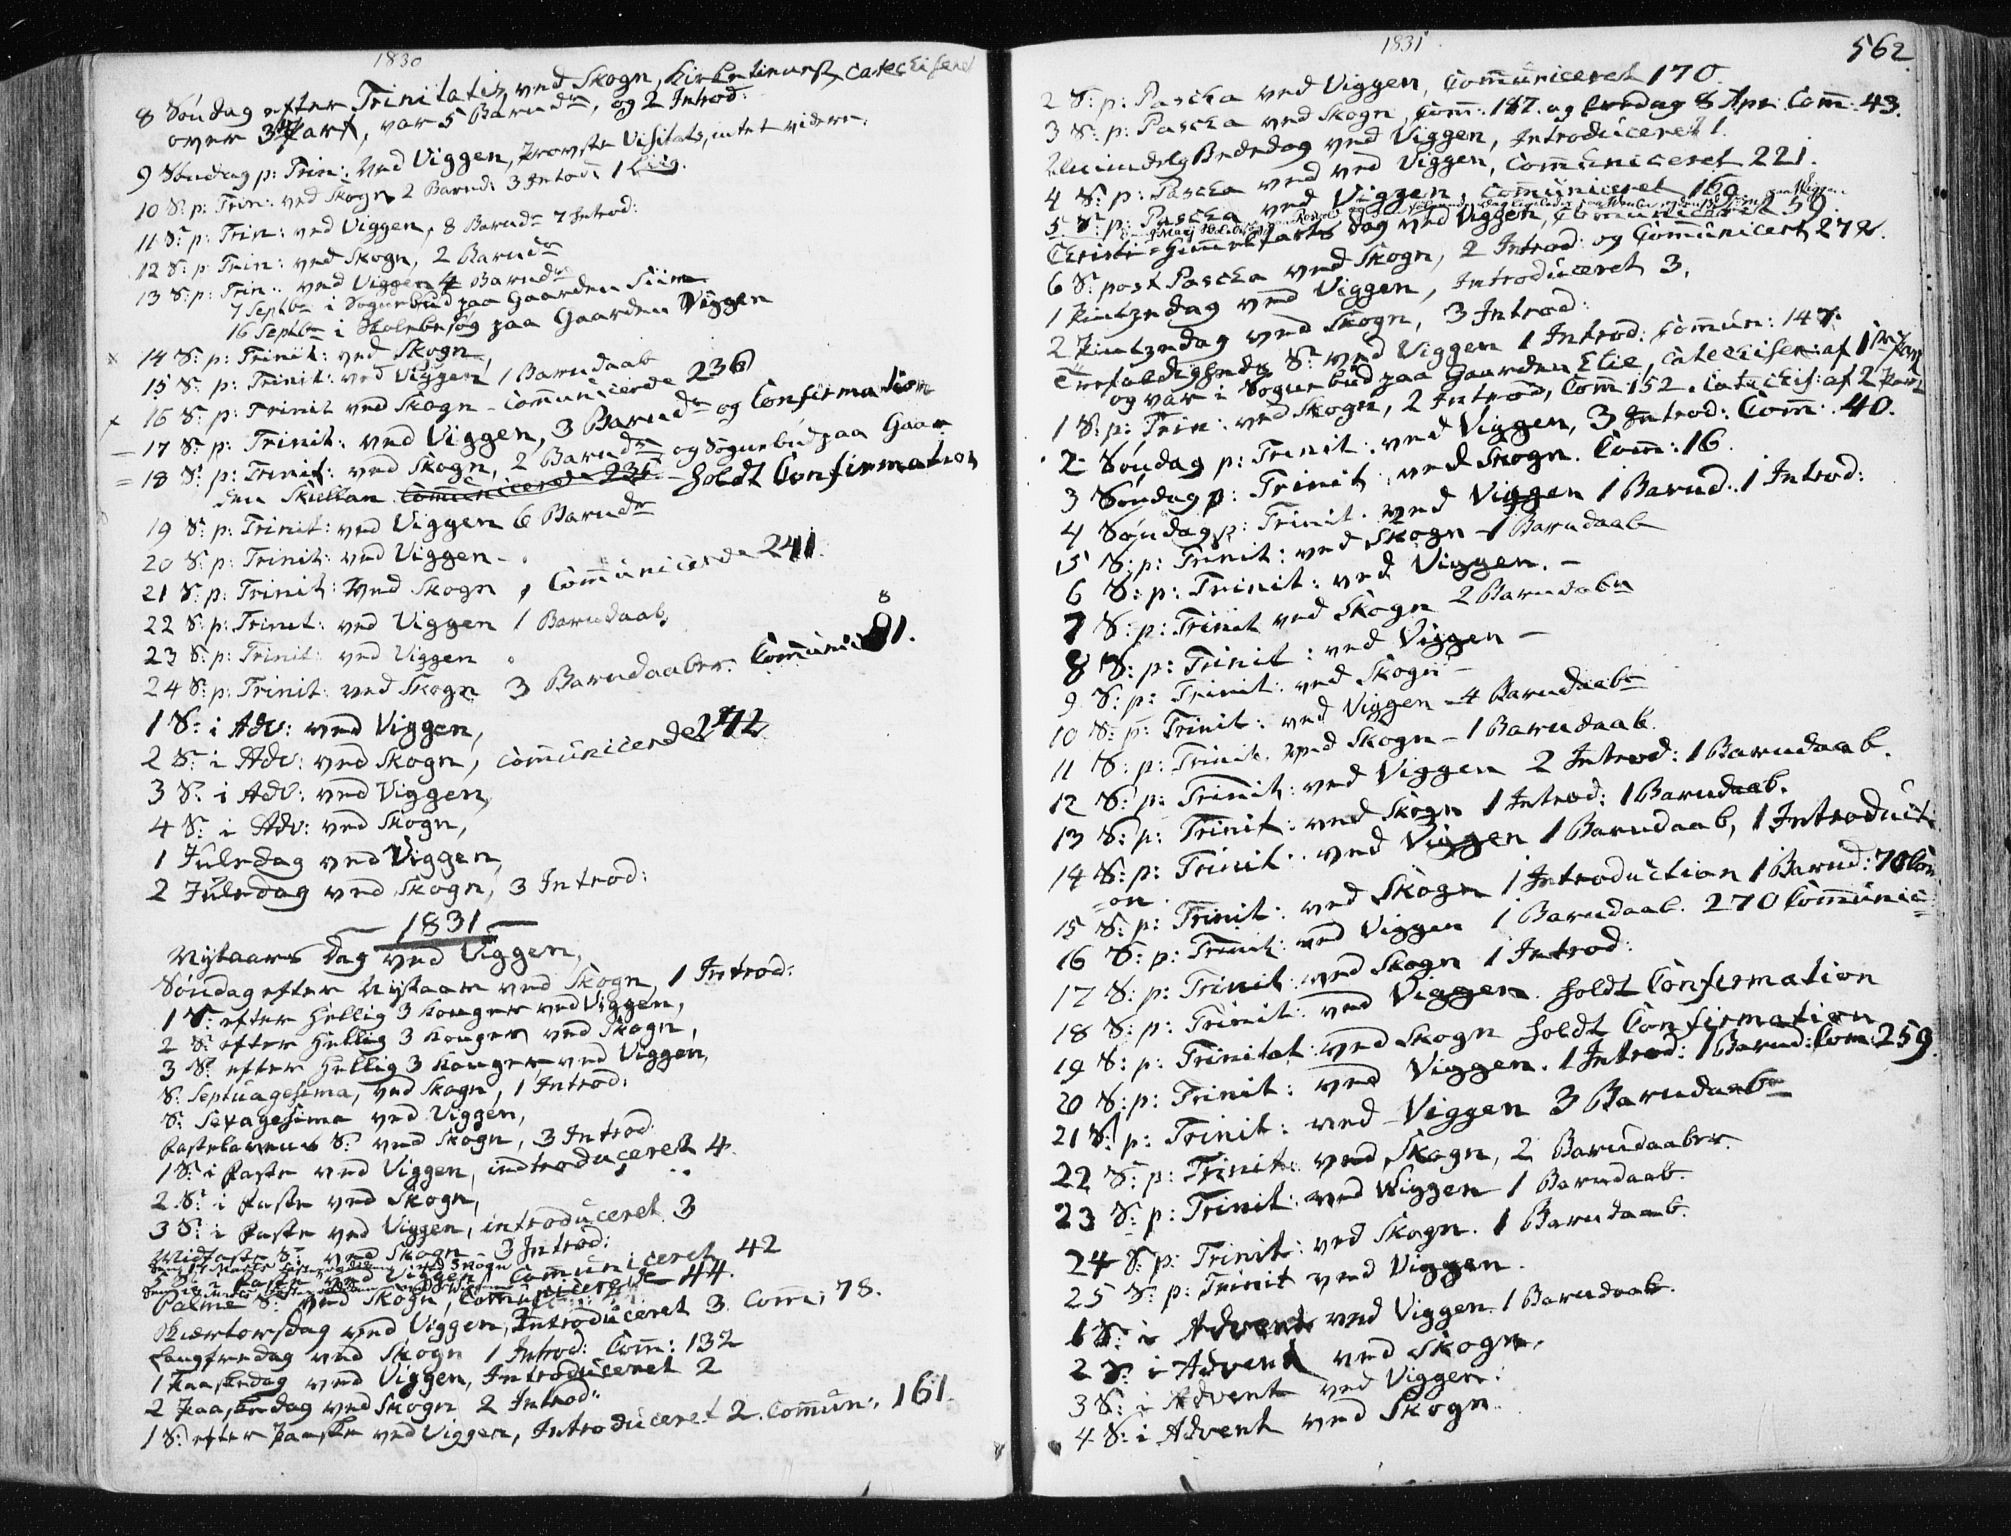 1830
8 Søndag efter Trinitatis, ved Skogn, Catechiseret
over 3die Part, var 5 Barnd:, og 2 Introd:
9 Søndag p: Trin: ved Viggen, Provste Visitats, intet videre.
10 S: p: Trin: ved Skogn 2 Barnd: 3 Introd: 1 Liig.
11 S: p: Trin: ved Viggen, 8 Barnd: 7 Introd:
12 S: p: Trin: ved Skogn, 2 Barnd:
13 S: p: Trin: ved Viggen 4 Barnd:
7 Septbr i Sognebud paa Gaarden Siim
16 Septbr i Skolebesøg paa Gaarden Viggen
x 14 S: p: Trinit: ved Skogn,
15 S: p: Trinit: ved Viggen 1 Barndaab
x 16 S: p: Trinit ved Skogn - Communicerde 236
- 17 S: p: Trinit: ved Viggen, 3 Barnd: og Confirmation
= 18 S: p: Trinit: ved Skogn, 2 Barnd: og Sognebud paa Gaar-
den Communicerede holdt Confirmation
19 S: p: Trinit: ved Viggen 6 Barnd:
20 S: p: Trinit: ved Viggen -
21 S: p: Trinit: ved Skogn, Communicerde 241.
22 S: p: Trinit: ved Viggen 1 Barndaab,
23 S: p: Trinit: ved Viggen
24 S: p: Trinit: ved Skogn 3 Barndaaber. Communic 81.
1 S: i Adv: ved Viggen,
2 S: i Adv: ved Skogn, Communicerde 242
3 S: i Adv: ved Viggen,
4 S: i Adv: ved Skogn,
1 Juledag ved Viggen,
2 Juledag ved Skogn, 3 Introd:
1831
Nytaars Dag ved Viggen,
Søndag efter Nytaar ved Skogn, 1 Introd:
1 S: efter Hellig 3 Konger ved Viggen,
2 S: efter Hellig 3 Konger ved Skogn,
3 S: efter Hellig 3 Konger ved Viggen,
S: Septuagesima, ved Skogn, 1 Introd:
S: Sexagesima ved Viggen,
Fastelavens S: ved Skogn, 3 Introd:
1 S: i Faste ved Viggen, indtroduceret 4.
2 S: i Faste ved Skogn,
3 S: i Faste ved Viggen, introduceret 3
Midfaste S: ved Skogn - 3 Introd:
5 S: i Faste ved Viggen, Communiceret 42
Palme S: ved Skogn, Communicerede 44.
Skiærtorsdag ved Viggen, Introduceret 3 Com: 78.
Langfredag ved Skogn 1 Introd: Com: 132
1 Paaskedag ved Viggen, Introduceret 2
2 Paaskedag ved Skogn 2 Introd:
1 S: efter Paaske ved Viggen, Introduceret 2. Commun: 161.
1831.
562.
2 S: p: Pascha ved Viggen, Communiceret 170.
3 S: p: Pascha ved Skogn, Com: 187. og Fredag 8 Apr: Com: 43.
Almindelig Bededag ved Viggen, Introduceret 1.
4 S: p: Pascha ved ved Viggen, Communiceret 221.
5 S: p: Pascha ved Viggen, Communiceret 160
Christi Himmelfarts dag ved Viggen, Communiceret 59.
6 S: post Pascha ved Skogn, 2 Introd: og Communicert 272.
1 Pintzedag ved Viggen, Introduceret 3.
2 Pintzedag ved Skogn, 3 Introd:
Trefoldigheds S: ved Viggen 1 Introd: Commun: 147.
og var i Sognebud paa Gaarden Elie, Catechiser: af 1ste Part
1 S: p: Trin: ved Skogn, 2 Introd, Com: 152. Catechis: af 2 Part
2 Søndag p: Trinit: ved Viggen, 3 Introd: Com: 40.
3 Søndag p: Trinit: ved Skogn. Com: 16.
4 Søndag p: Trinit. ved Viggen 1 Barnd: 1 Introd:
5 S: p: Trinit: ved Skogn - 1 Barndaab
6 S: p: Trinit: ved Viggen. -
7 S: p: Trinit ved Skogn 2 Barndab:
8 S: p: Trinit: ved Viggen -
9 S: p: Trinit: ved Skogn -
10 S: p: Trinit: ved Viggen - 4 Barndaab:
11 S: p: Trinit. ved Skogn - 1 Barndaab.
12 S: p: Trinit: ved Viggen 2 Introd: 1 Barndaab.
13 S: p: Trinit: ved Skogn 1 Introd: 1 Barndaab.
14 S: p: Trinit: ved Viggen 1 Barndaab, 1 Introducti-
=on.
15 S: p: Trinit: ved Skogn 1 Introduction 1 Barnd: 70 Com
16 S: p: Trinit: ved Viggen 1 Barndaab. 270 Communic:
17 S: p: Trinit: ved Skogn 1 Introd:
18 S: p: Trinit: ved Viggen. holdt Confirmation
19 S: p: Trinitat: ved Skogn holdt Confirmation
20 S: p: Trinit: ved Viggen. 1 Introd: 1 Barnd: Com: 259.
21 S: p: Trinit: ved Viggen 3 Barndaab:
22 S: p: Trinit: ved Skogn, 2 Barndaaber.
23 S: p: Trinit: ved Wiggen 1 Barndaab.
24 S: p: Trinit: ved Skogn. 1 Barndaab.
25 S: p: Trinit ved Viggen.
1 S: i Advent ved Viggen. 1 Barndaab.
2 S: i Advent ved Skogn.
3 S: i Advent ved Viggen:
4 S: i Advent ved Skogn.